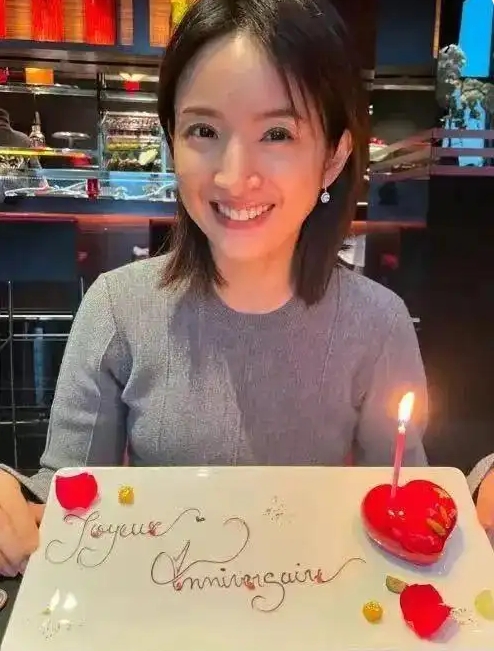 Joyeux
Anniversaire